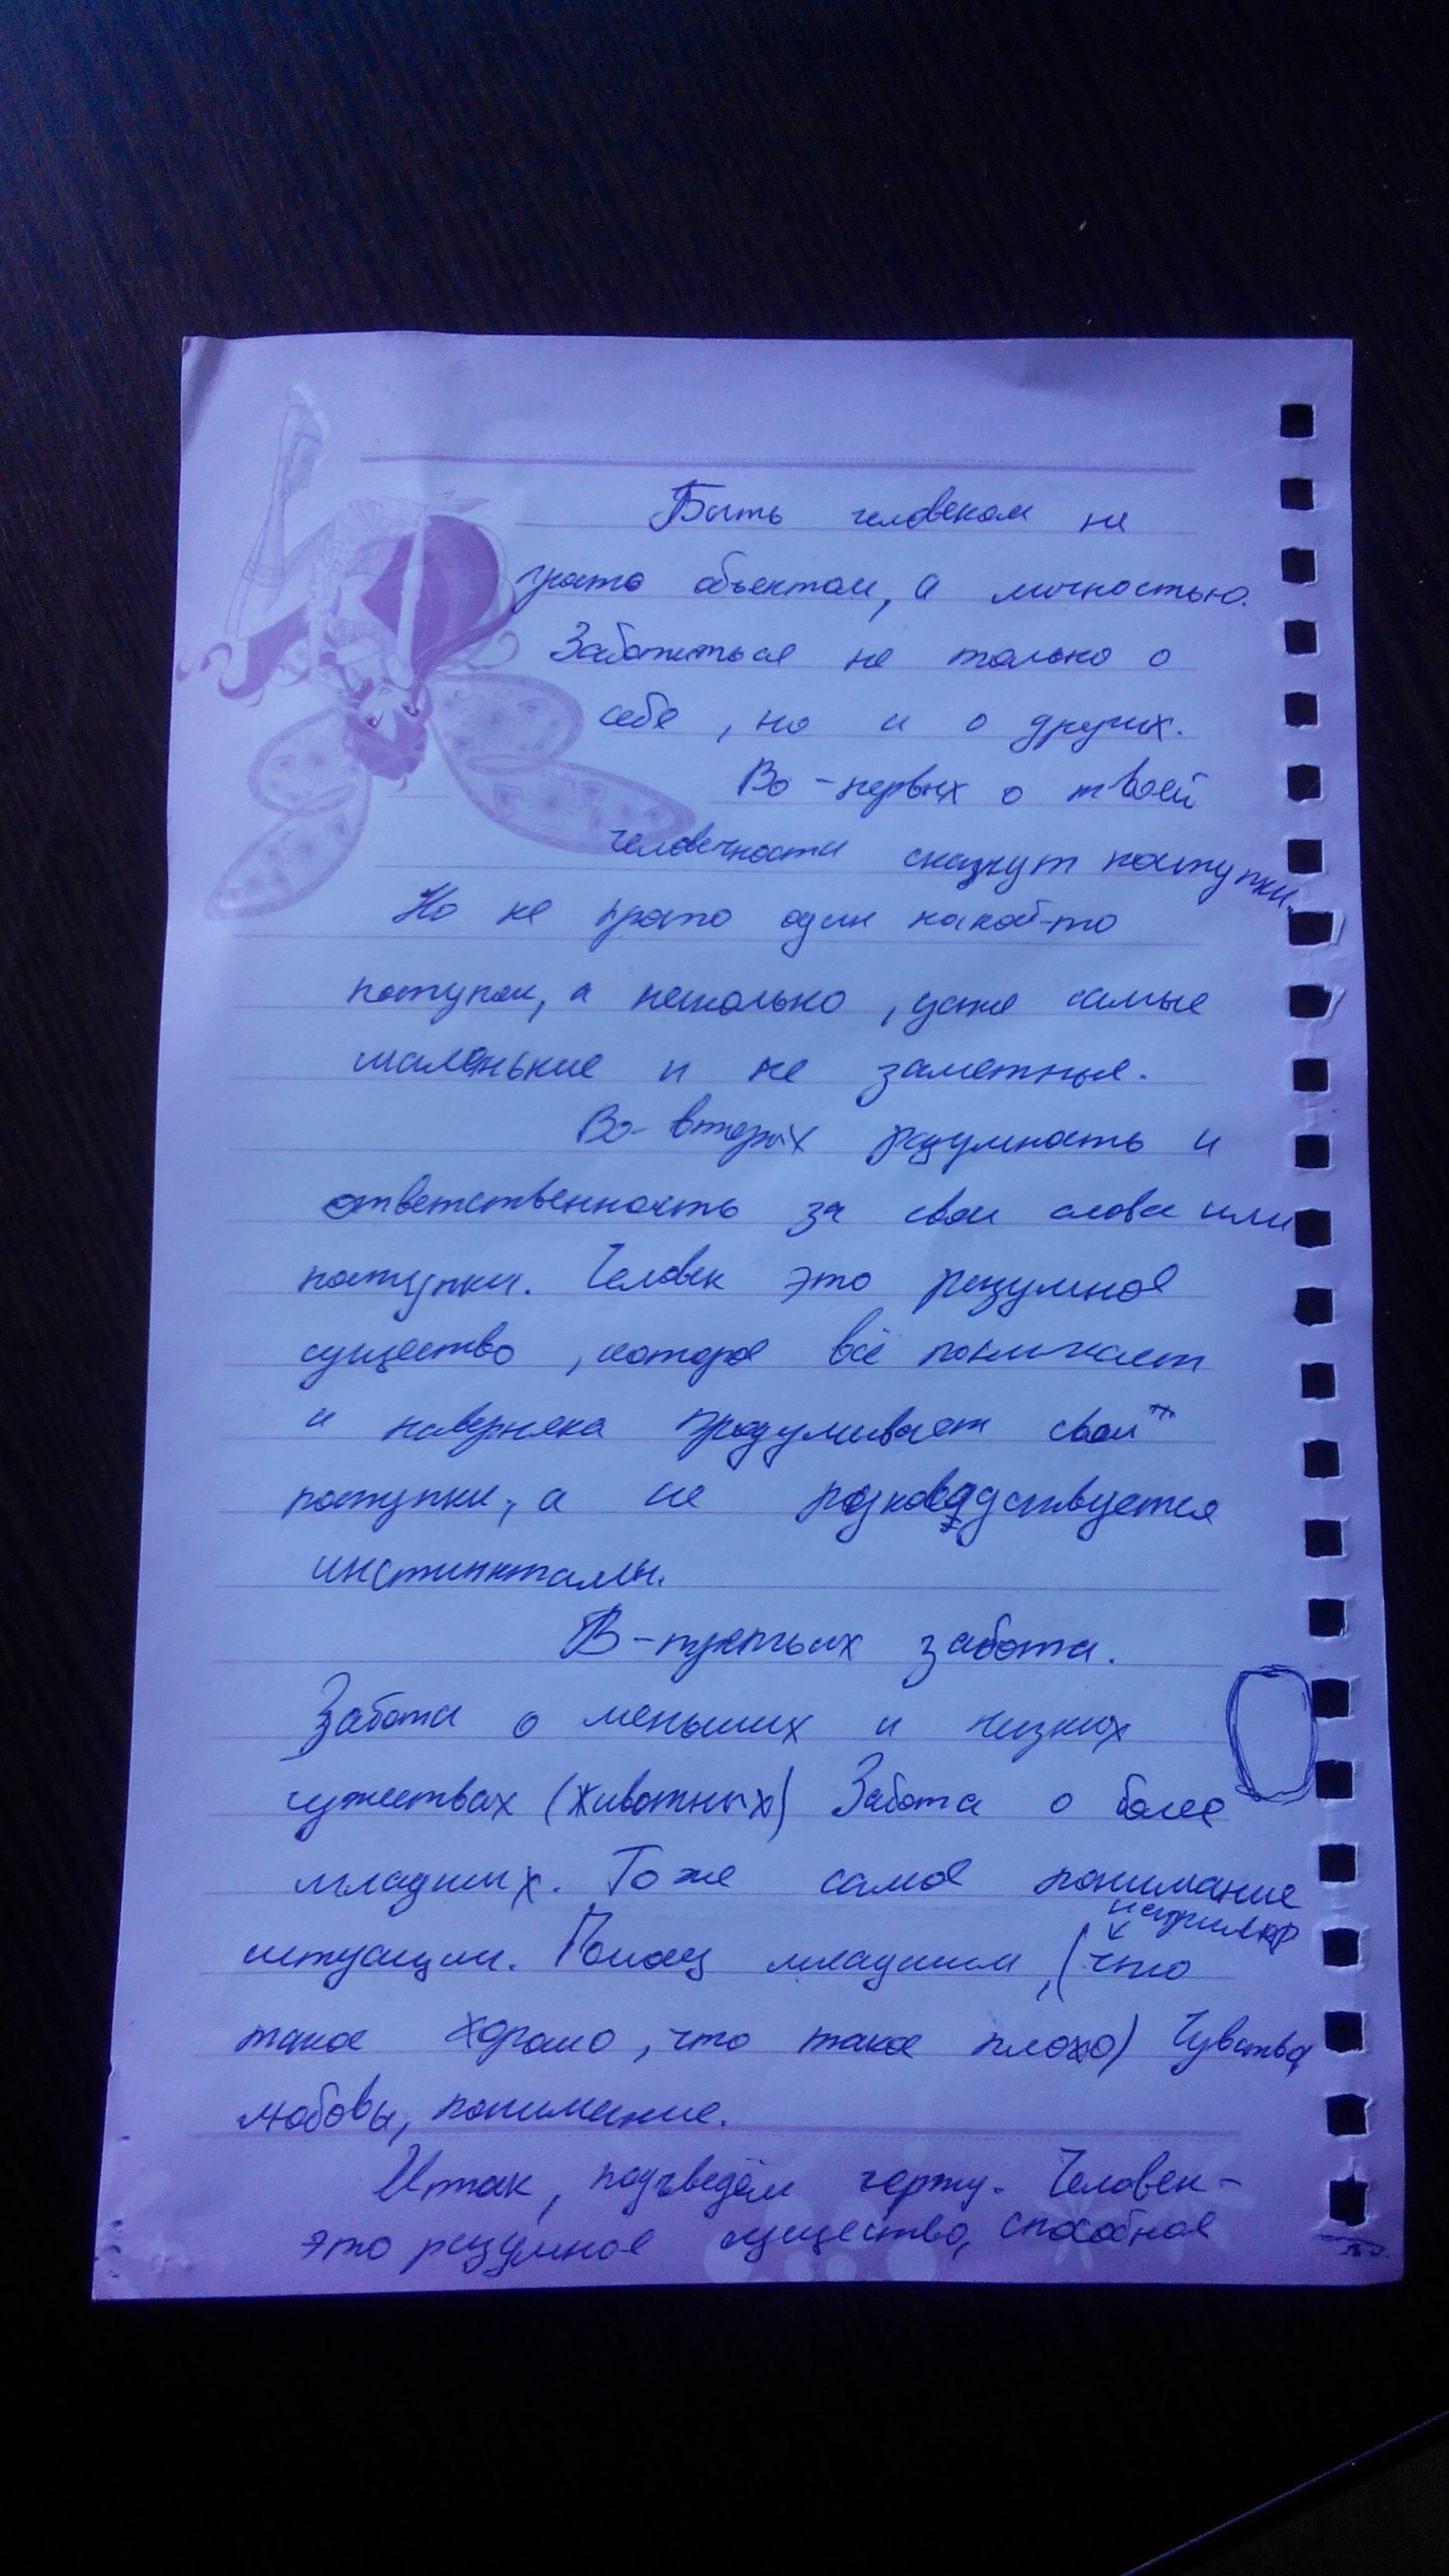 Быть человеком не
просто объектом, а личностью.
Заботиться не только о
себе, но и о других.
Во-первых о твоей
человечности скажут поступки.
Но не просто один какой-то
поступок, а несколько, даже самые
маленькие и не заметные.
Во-вторых разумность и
ответственность за свои слова или
поступки. Человек это разумное
существо, которое всё понимает
и наверняка продумывает свои
поступки, а не
инстинктами.
В-третьих забота.
Забота о меньших и низких
существах (животных) Забота о более
младших. То же самое понимание
например
ситуации. Показ младшим, (что
такое хорошо, что такое плохо) Чувства
любовы, понимание.
Итак, подъведём черту. Человек-
это разумное существо, способное